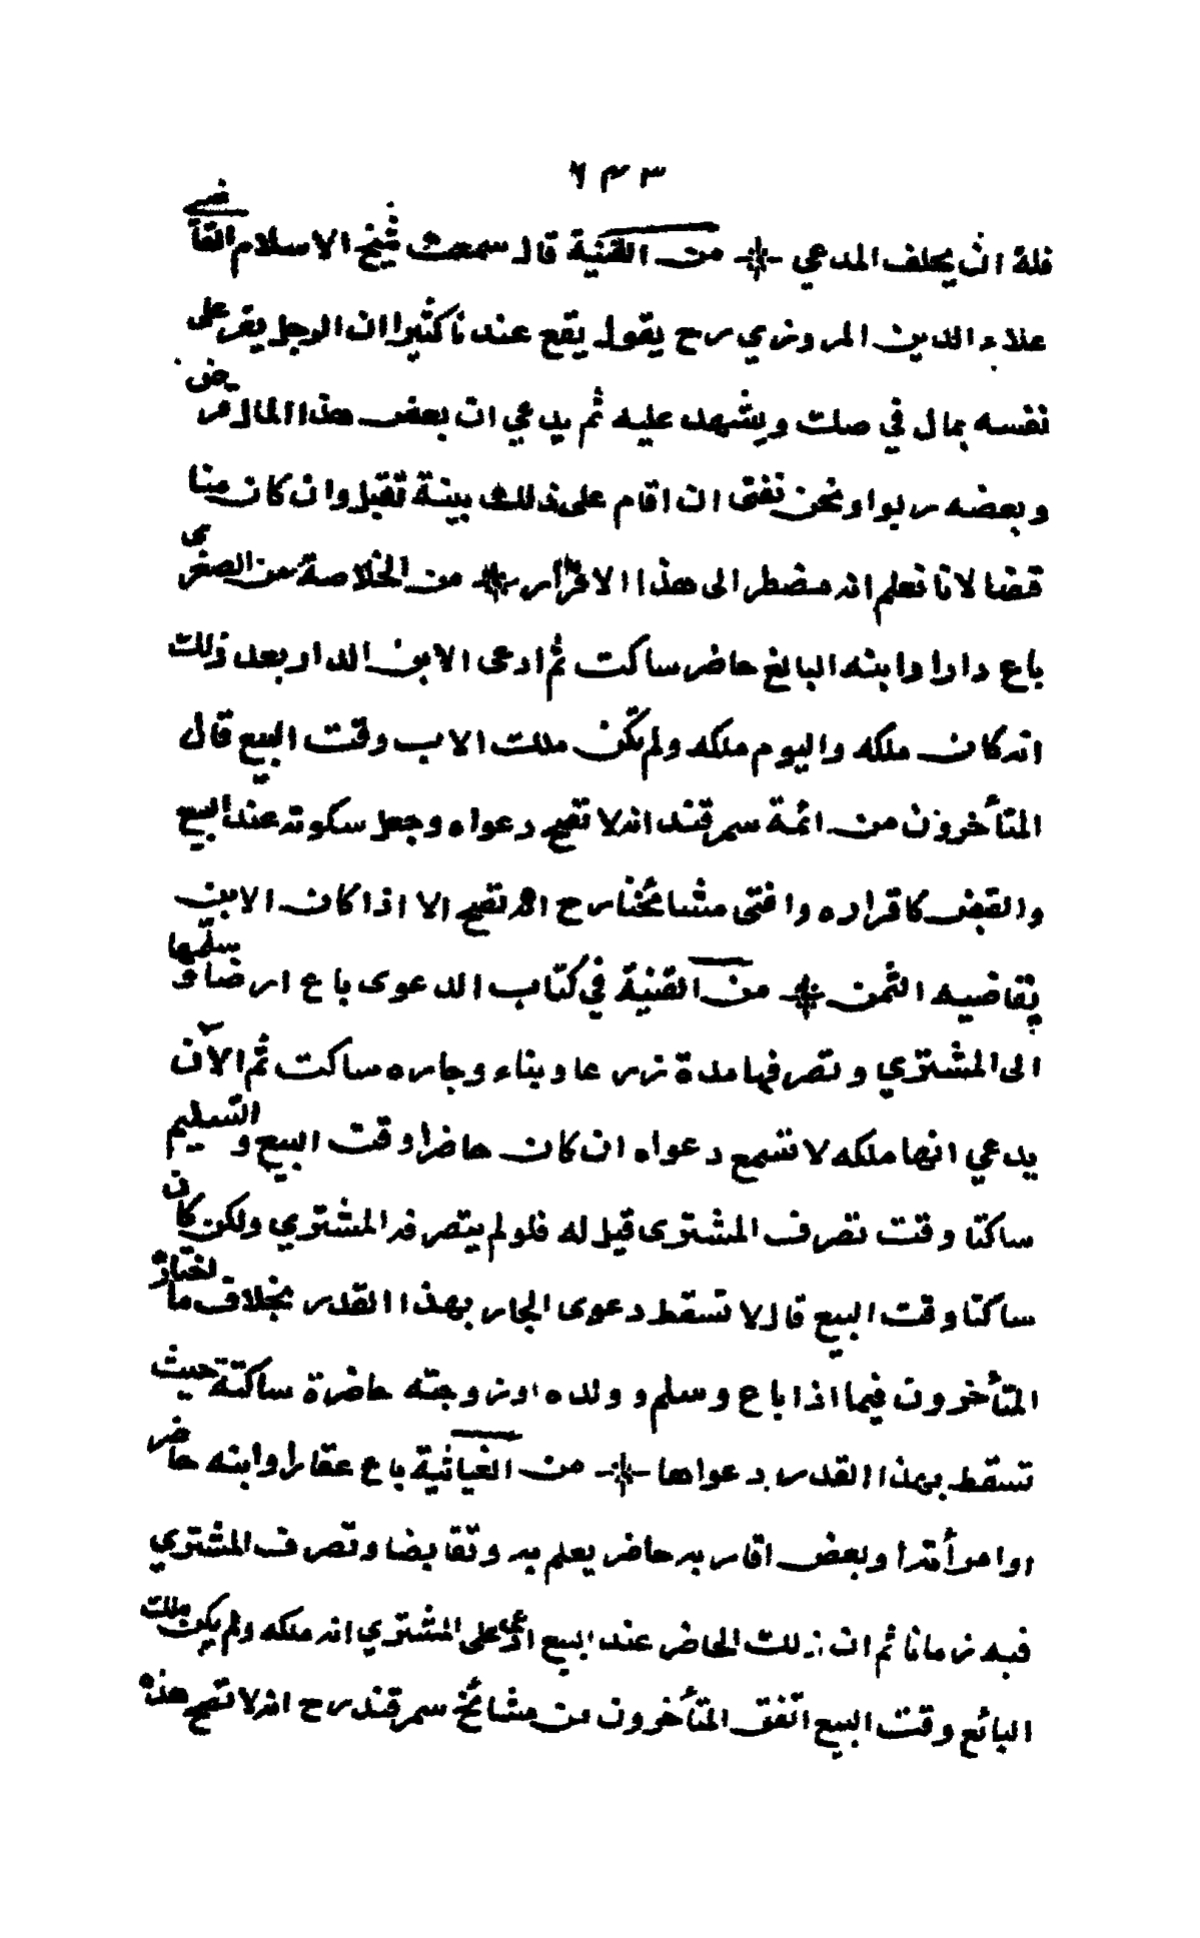 ٦٤٣
فله ان يحلف المدعي * من القنية قال سمعت شيخ الاسلام القاضي
علاء الدين المروزي رح يقول يقع عندنا كثيرا ان الرجل يقر على
نفسه بمال في صك ويشهد عليه ثم يدعي ان بعض هذا المال قرض
وبعضه ربوا ونحن نفتى ان اقام على ذلك بينة تقبل وان كان مناقضا
لانا نعلم انه مضطر الى هذا الاقرار * من الخلاصة من الصغرى
باع دارا وابنه البالغ حاضر ساكت ثم ادعى الابن الدار بعد ذلك
انه كان ملكه واليوم ملكه ولم تكن ملك الاب وقت البيع قال
المتأخرون من ائمة سمرقند انه لا تصح دعواه وجعل سكوته عند البيع
والقبض كاقراره وافتى مشائخنا رح انه تصح الا اذا كان الابن
يتقاضيه الثمن * من القنية في كتاب الدعوى باع ارضا وسلمها
الى المشتري وتصرفها مدة زرعا وبناء وجاره ساكت ثم الآن
يدعي انها ملكه لا تسمع دعواه ان كان حاضرا وقت البيع والتسليم
ساكتا وقت تصرف المشترى قيل له فلو لم يتصرف المشتري ولكن كان
ساكتا وقت البيع قال لا تسقط دعوى الجار بهذا القدر بخلاف ما اختاره
المتأخرون فيما اذا باع وسلم وولده او زوجته حاضرة ساكتة حيث
تسقط بهذا القدر دعواها * من الغياثية باع عقارا وابنه حاضر
او امرأته او بعض اقاربه حاضر يعلم به وتقابضا وتصرف المشتري
فيه زمانا ثم ان ذلك الحاضر عند البيع ادعى على المشتري انه ملكه ولم يكن ملك
البائع وقت البيع اتفق المتأخرون من مشائخ سمرقند رح انه لا تصح هذه